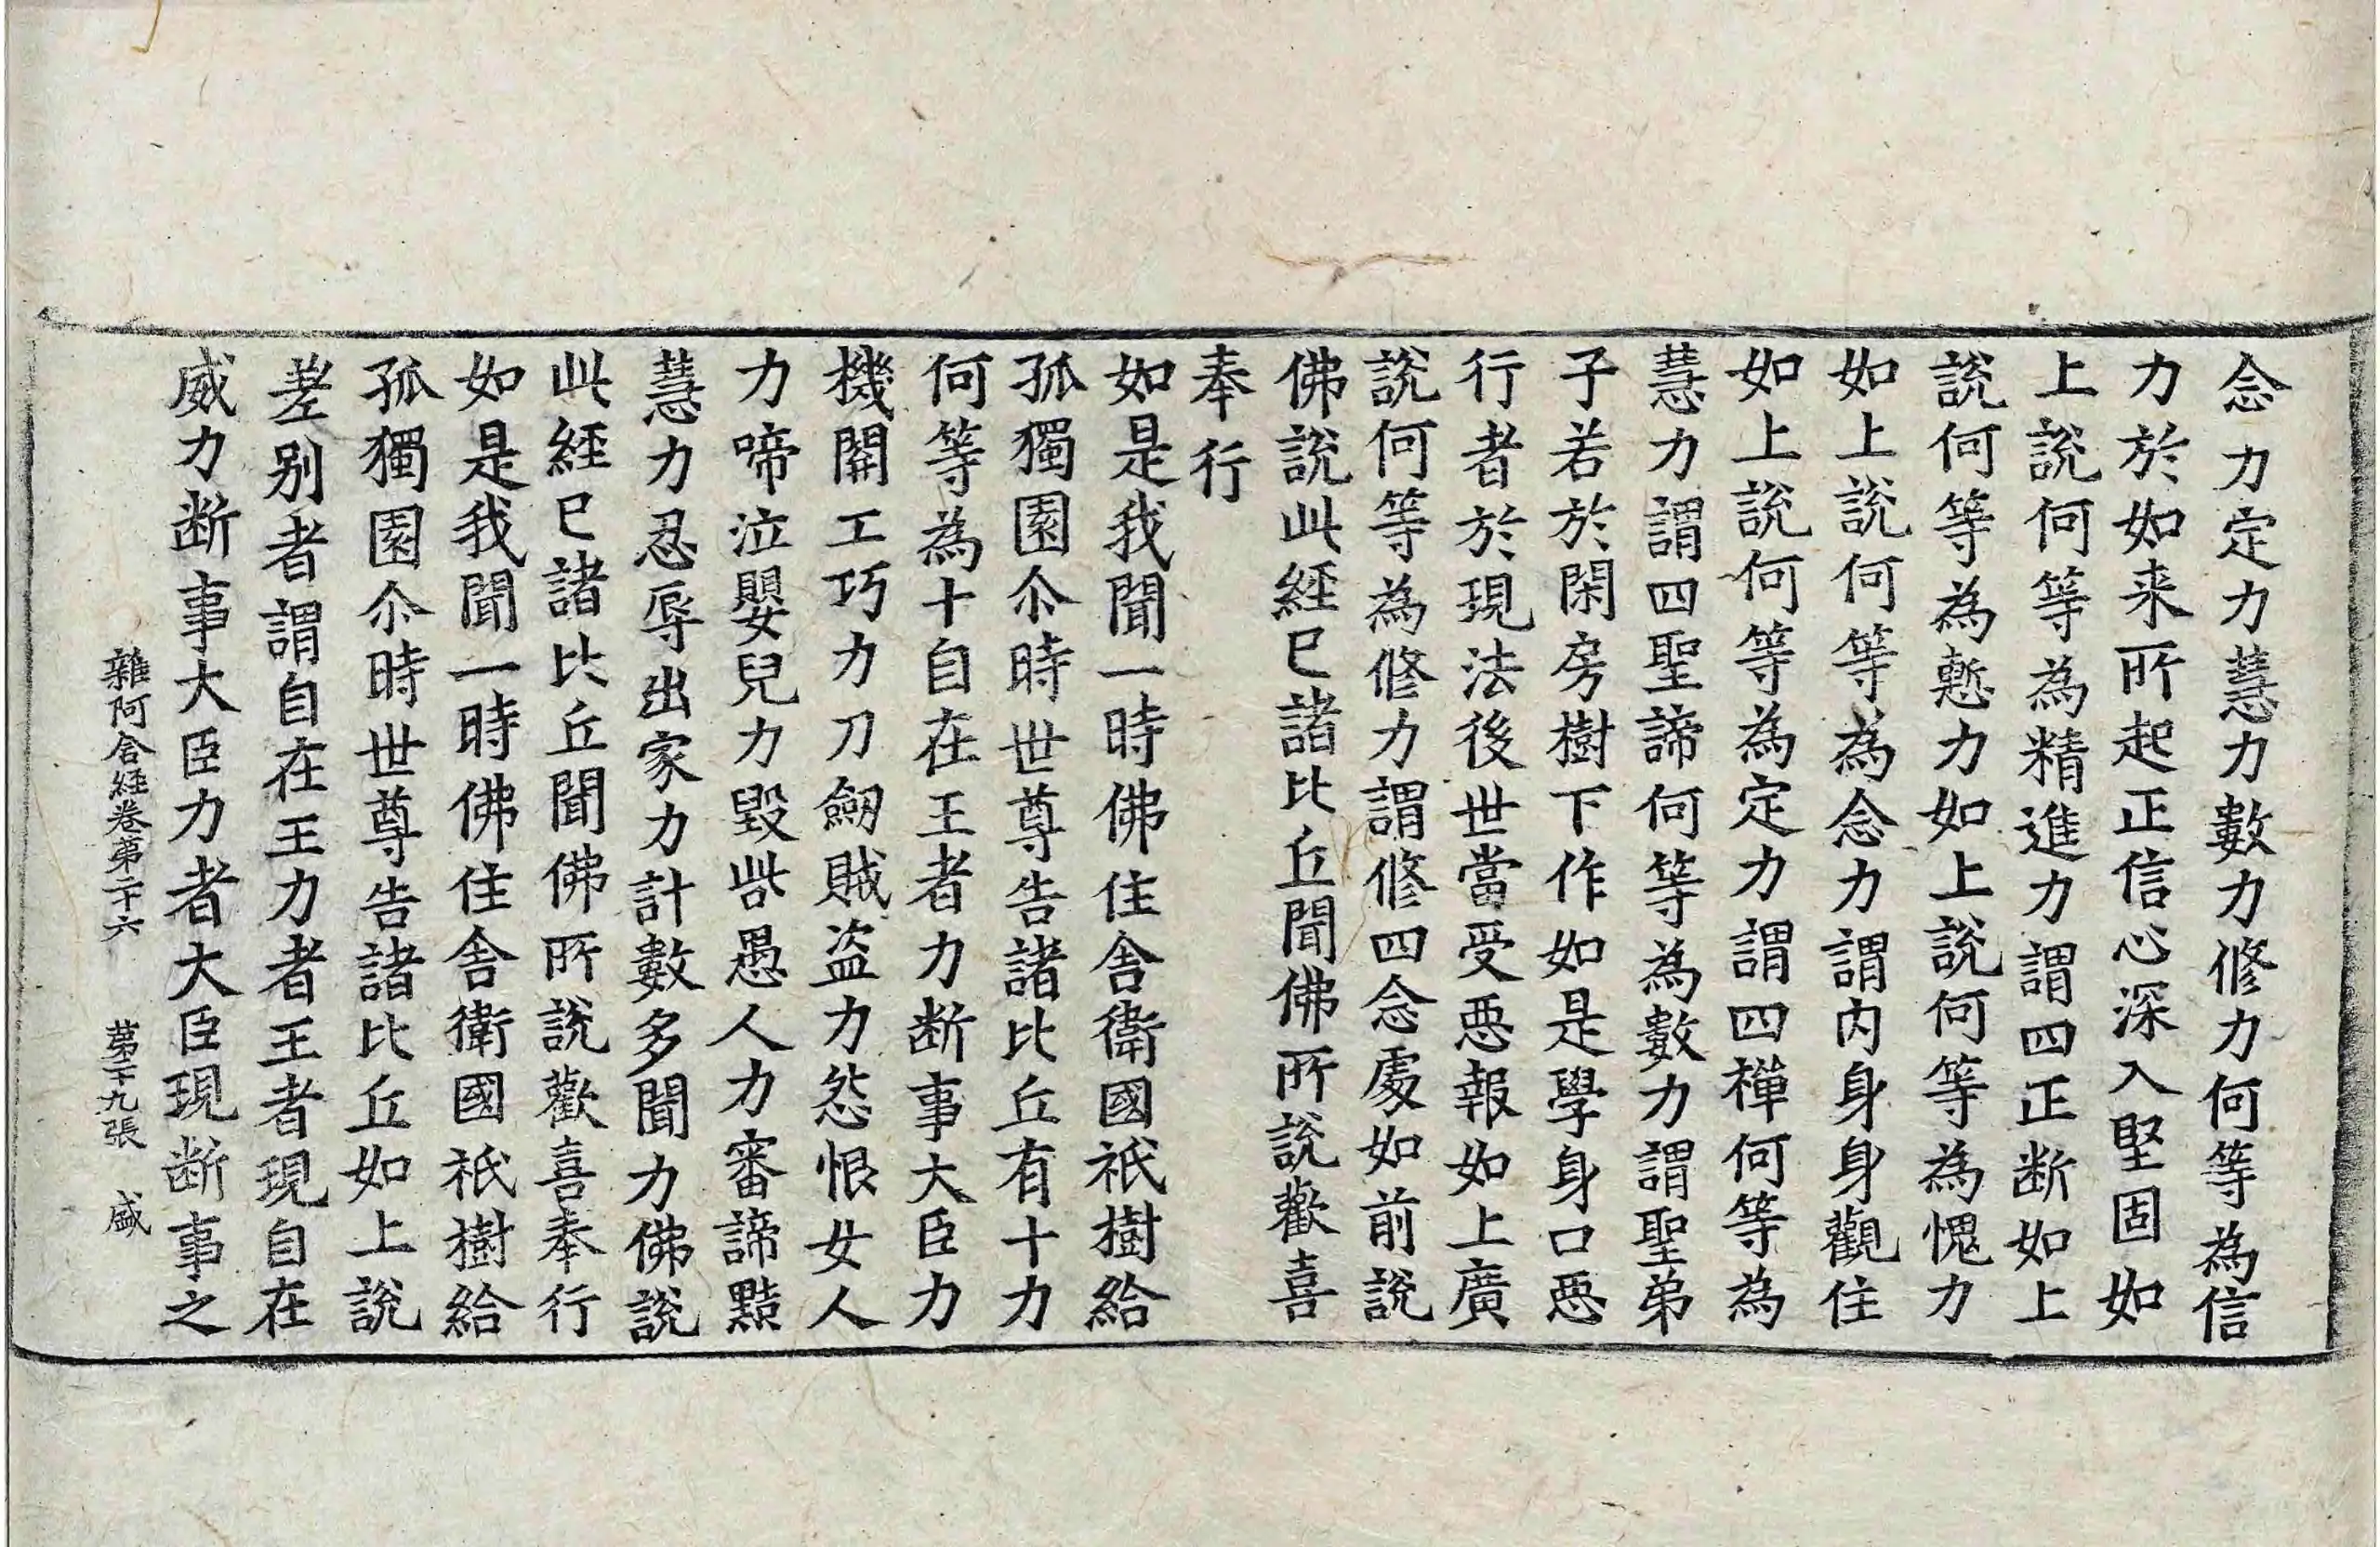 念力定力慧力數力修力何等為信
力於如来所起正信心深入堅固如
上說何等為精進力謂四正断如上
說何等為慙力如上說何等為愧力
如上說何等為念力謂內身身觀住
如上說何等為定力謂四禪何等為
慧力謂四聖諦何等為數力謂聖弟
子若於閑房樹下作如是學身口惡
行者於現法後世當受惡報如上廣
說何等為修力謂修四念處如前說
佛說此經已諸比丘聞佛所說歡喜
奉行
如是我聞一時佛住舍衛國祇樹給
孤獨園尒時世尊告諸比丘有十力
何等為十自在王者力断事大臣力
機關工巧力刀劒賊盗力怨恨女人
力啼泣嬰兒力毀呰愚人力審諦黠
慧力忍辱出家力計數多聞力佛說
此經已諸比丘聞佛所說歡喜奉行
如是我聞一時佛住舍衛國祇樹給
孤獨園尒時世尊告諸比丘如上說
差別者謂自在王力者王者現自在
威力断事大臣力者大臣現断事之
雜阿含經卷第二十六 第二十九張 盛